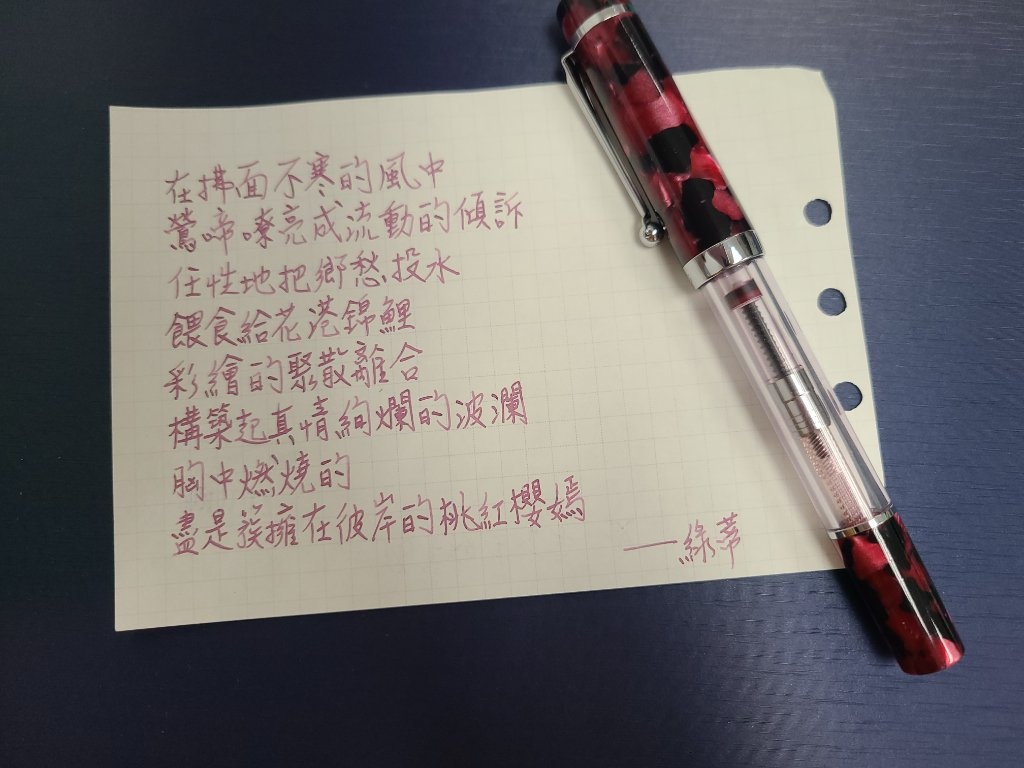 在拂面不寒的風中
鶯啼嘹亮成流動的傾訴
任性地把鄉愁投水
餵食給花港錦鯉
彩繪的聚散離合
構築起真情絢爛的波瀾
胸中燃燒的
盡是簇擁在彼岸的桃紅櫻嫣
——綠蒂